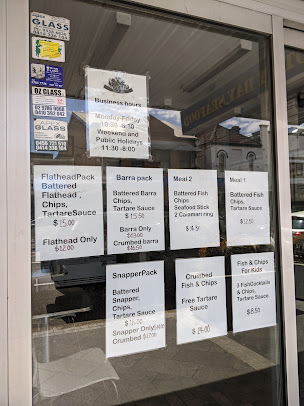 GLASS
OZ GLASS
GLASS
Business hours
Monday-Friday
10:30 -8:30
Weekend and
Public Holidays
11:30 -8:00
FlatheadPack
Battered
Flathead ,
Chips,
TartareSauce
$ 15.00
Flathead Only
$12.00
Barra pack
Battered Barra
Chips,
Tartare Sauce
$ 15.50
Barra Only
Crumbed barra
Meal 2
Battered Fish
Chips
Seafood Stick
2 Calamari ring
Meal 1
Battered Fish
Chips,
Tartare Sauce
SnapperPack
Battered
Snapper,
Chips,
Tartare Sauce
Snapper Only
Crumbed
Crumbed
Fish & Chips
Free Tartare
Sauce
$ 14.00
Fish & Chips
For Kids
3 FishCocktails
& Chips,
Tartare Sauce
$ 8.50